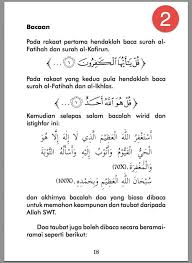 2
Bacaan
Pada rakaat pertama hendaklah baca surah al-
Fatihah dan surah al-Kafirun.
﴿ قُلْ يَٰٓأَيُّهَا ٱلْكَٰفِرُونَ ١ ... ﴾
Pada rakaat yang kedua pula hendaklah baca
surah al-Fatihah dan al-Ikhlas.
﴿ قُلْ هُوَ ٱللَّهُ أَحَدٌ ١ ... ﴾
Kemudian selepas salam bacalah wirid dan
istighfar ini:
أَسْتَغْفِرُ اللهَ الْعَظِيْمَ الَّذِي لَا إِلَهَ إِلَّا هُوَ
الْحَيُّ الْقَيُّوْمُ وَأَتُوْبُ إِلَيْهِ وَأَسْأَلُهُ التَّوْبَةَ
وَالْمَغْفِرَةَ. (70X)
سُبْحَانَ اللهِ الْعَظِيْمِ وَبِحَمْدِهِ. (100X)
dan akhirnya bacalah doa yang biasa dibaca
untuk memohon keampunan dan taubat daripada
Allah SWT.
Doa taubat juga boleh dibaca secara beramai-
ramai seperti berikut:
18